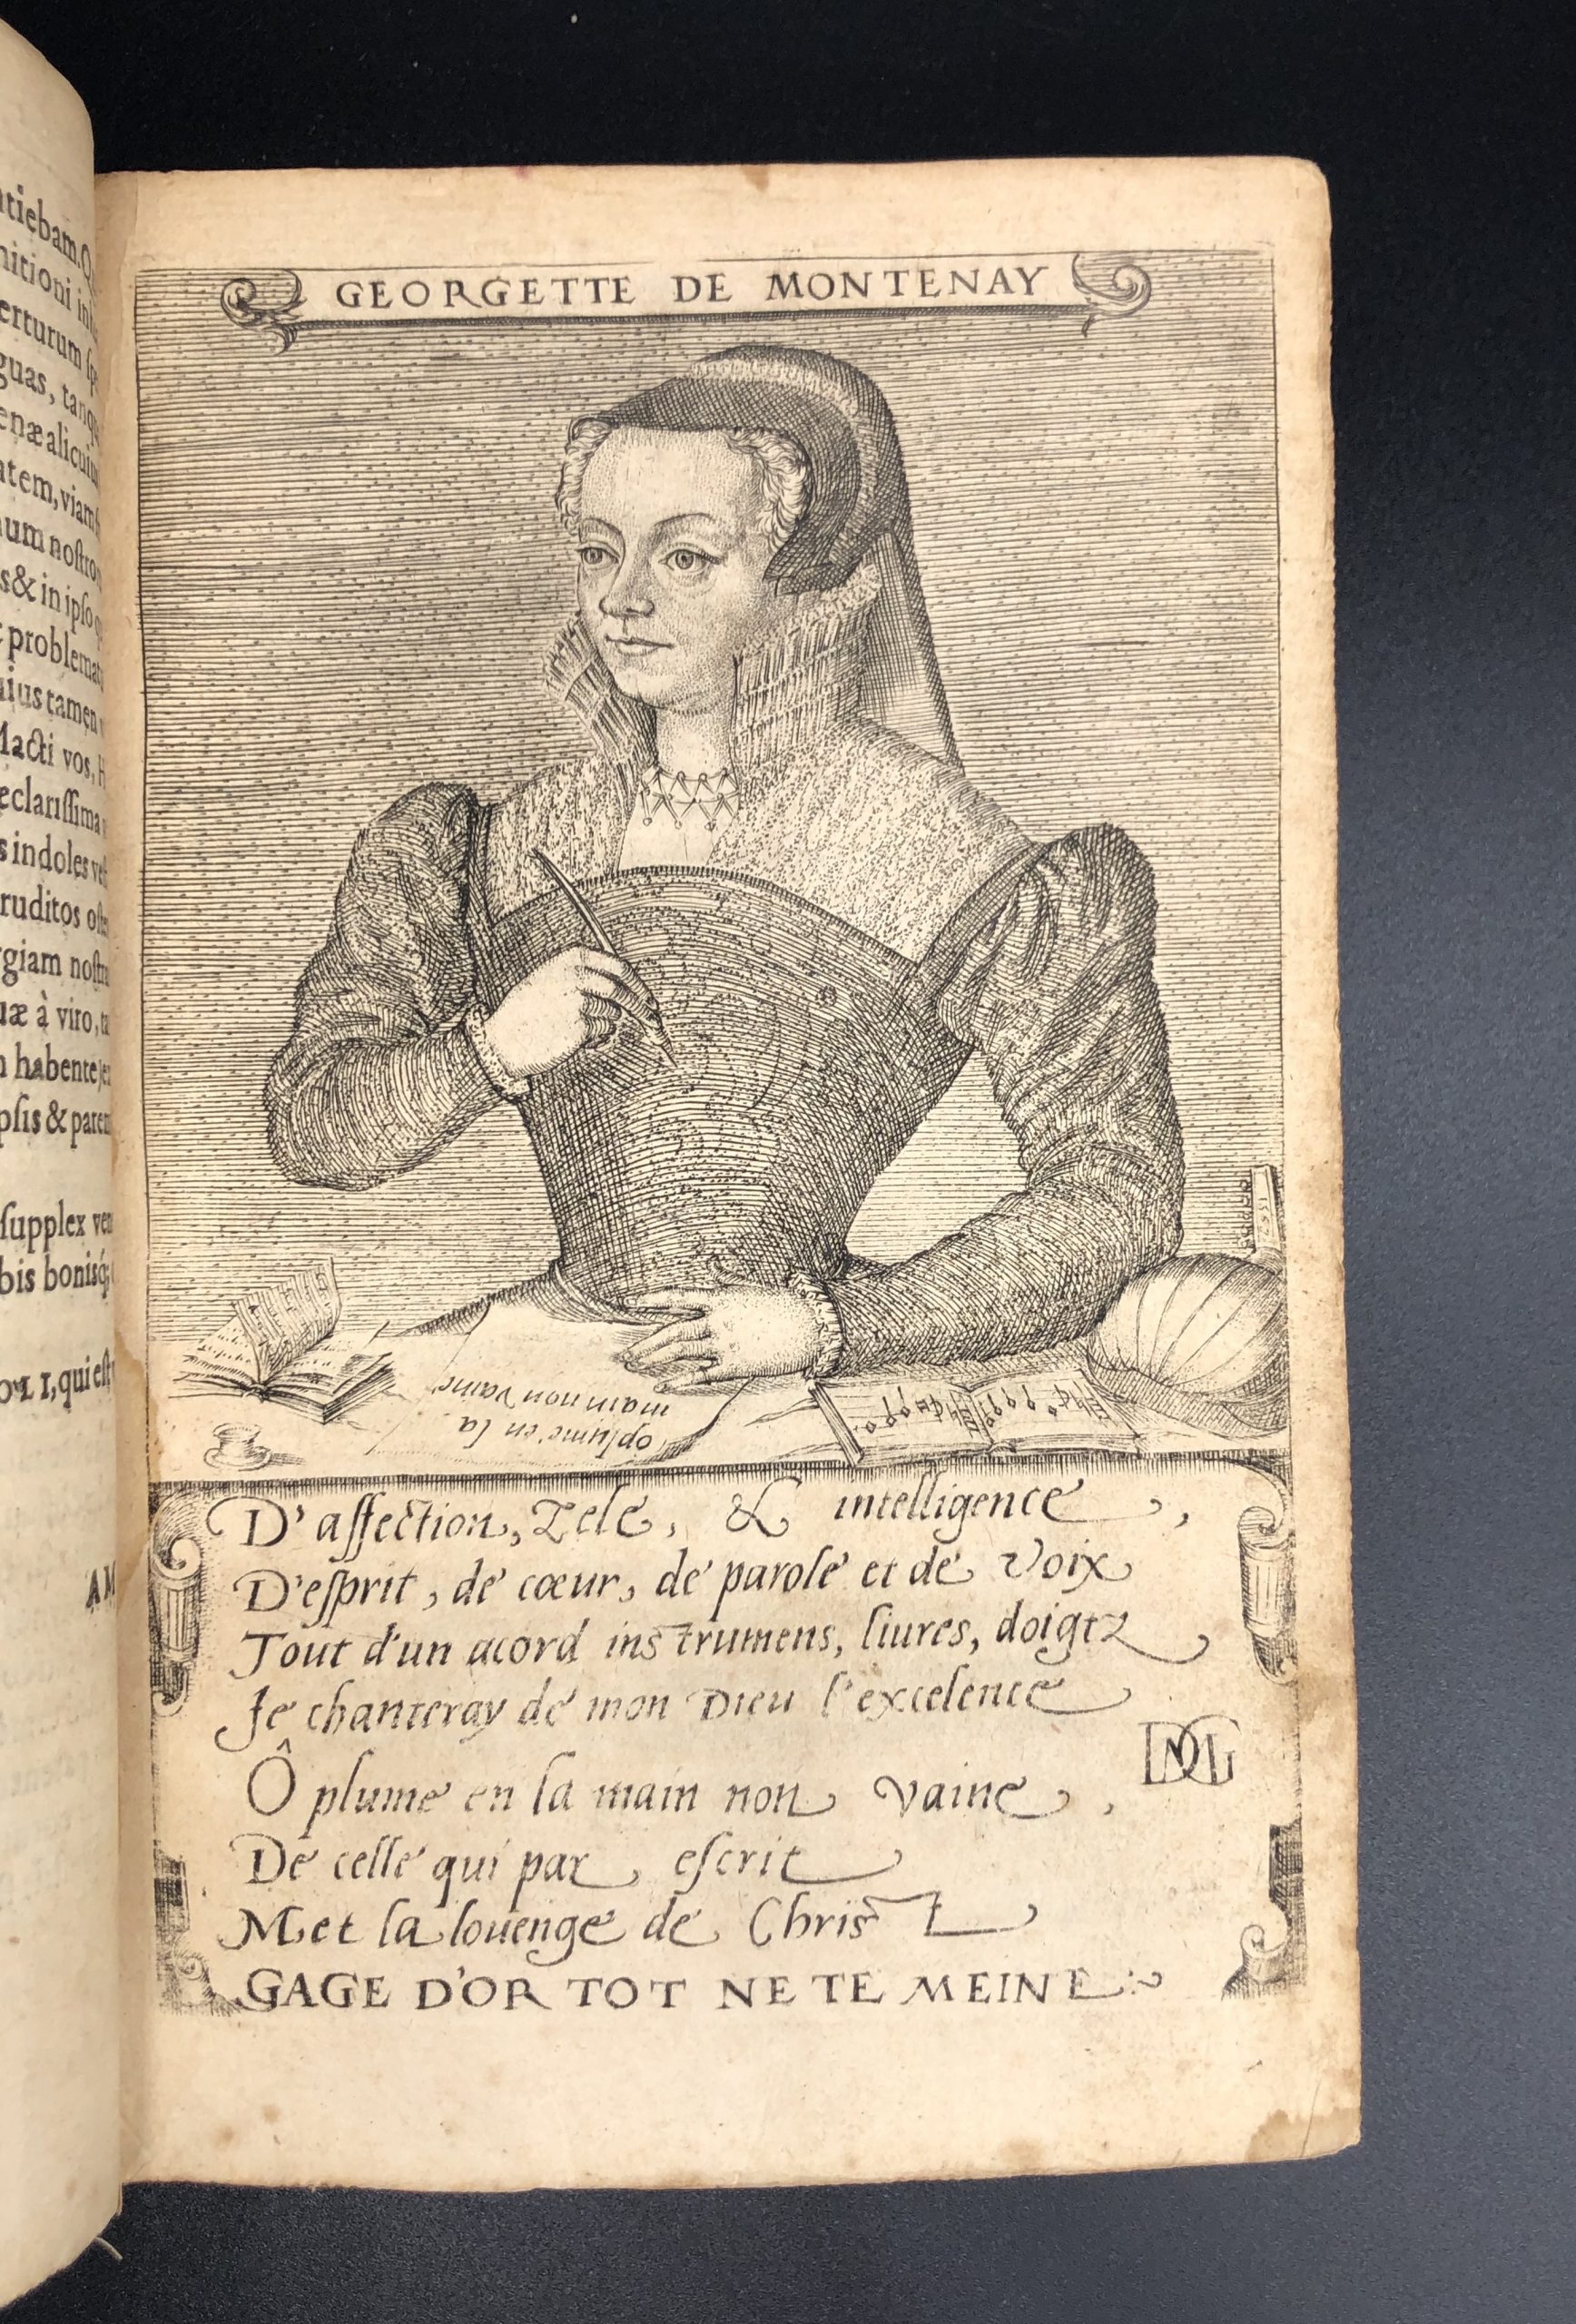 tiebam. Q
nitioni in
erturum
guas, tanq
enæ alicuiu
atem, viam
um noſtro
s & in ipſo
problemat
ius tamen
Macti vos, H
eclariſſima
s indoles veſ
ruditos
giam noſtra
uæ à viro,
habente
pſis & paren
ſupplex ven
bis bonisq;
qui eſt
AM
GEORGETTE DE MONTENAY
ô plume en la
main non vaine
D'affection, Zele, & intelligence,
D'eſprit, de cœur, de parole et de voix
Tout d'un acord instrumens, liures, doigtz
Je chanteray de mon Dieu l'excelence
Ô plume en la main non vaine,
De celle qui par eſcrit
Met la louenge de Christ
GAGE D'OR TOT NE TE MEINE